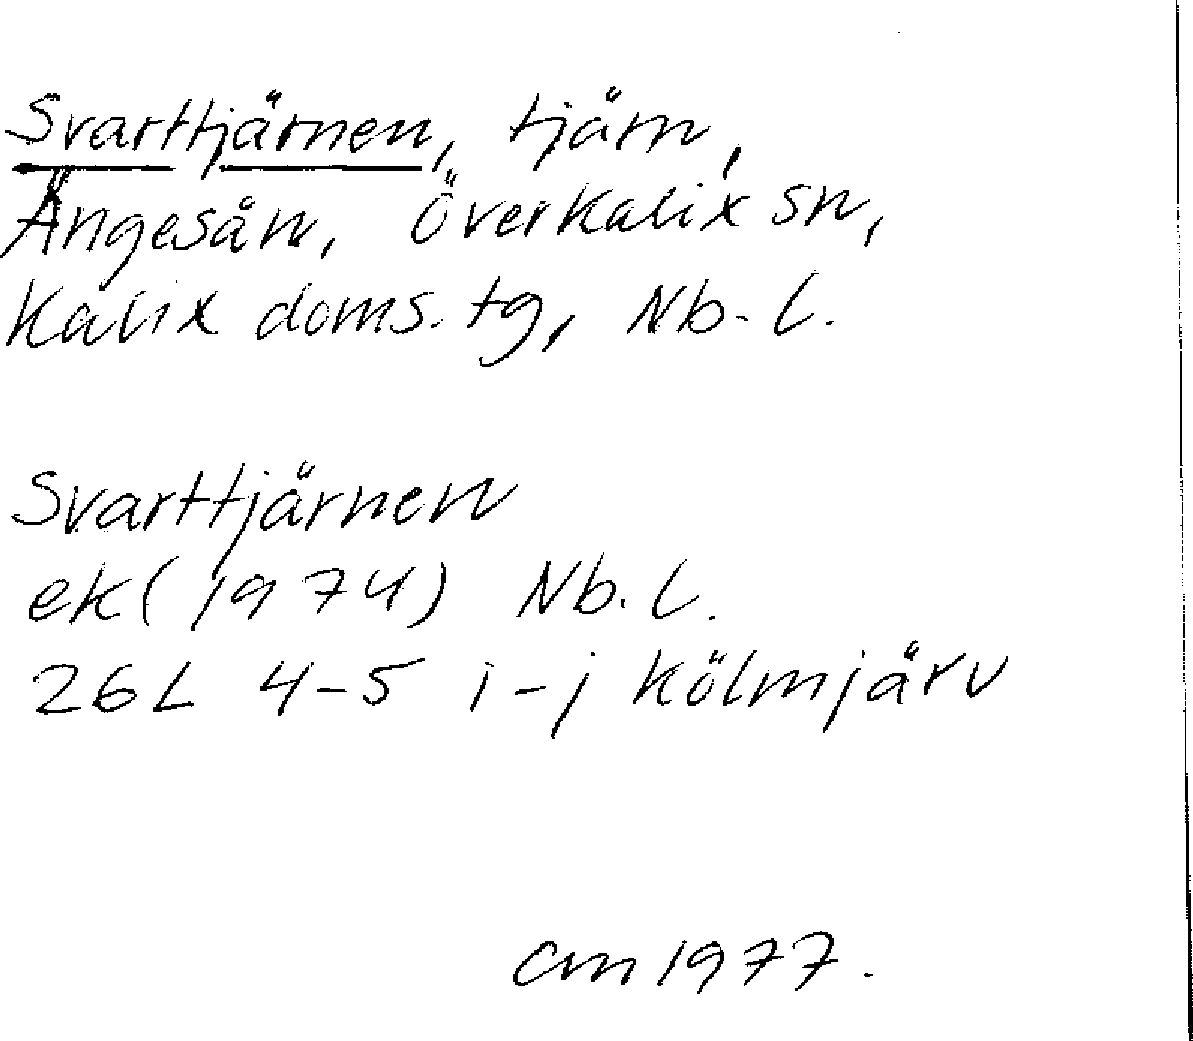 Svarttjärnen, tjärn,
Ängesån, Överkalix sn,
Kalix doms. tg, Nb. L.
Svarttjärnen
ek (1974) Nb. L.
26L 4-5 i-j Kölmjärv
CM 1977.